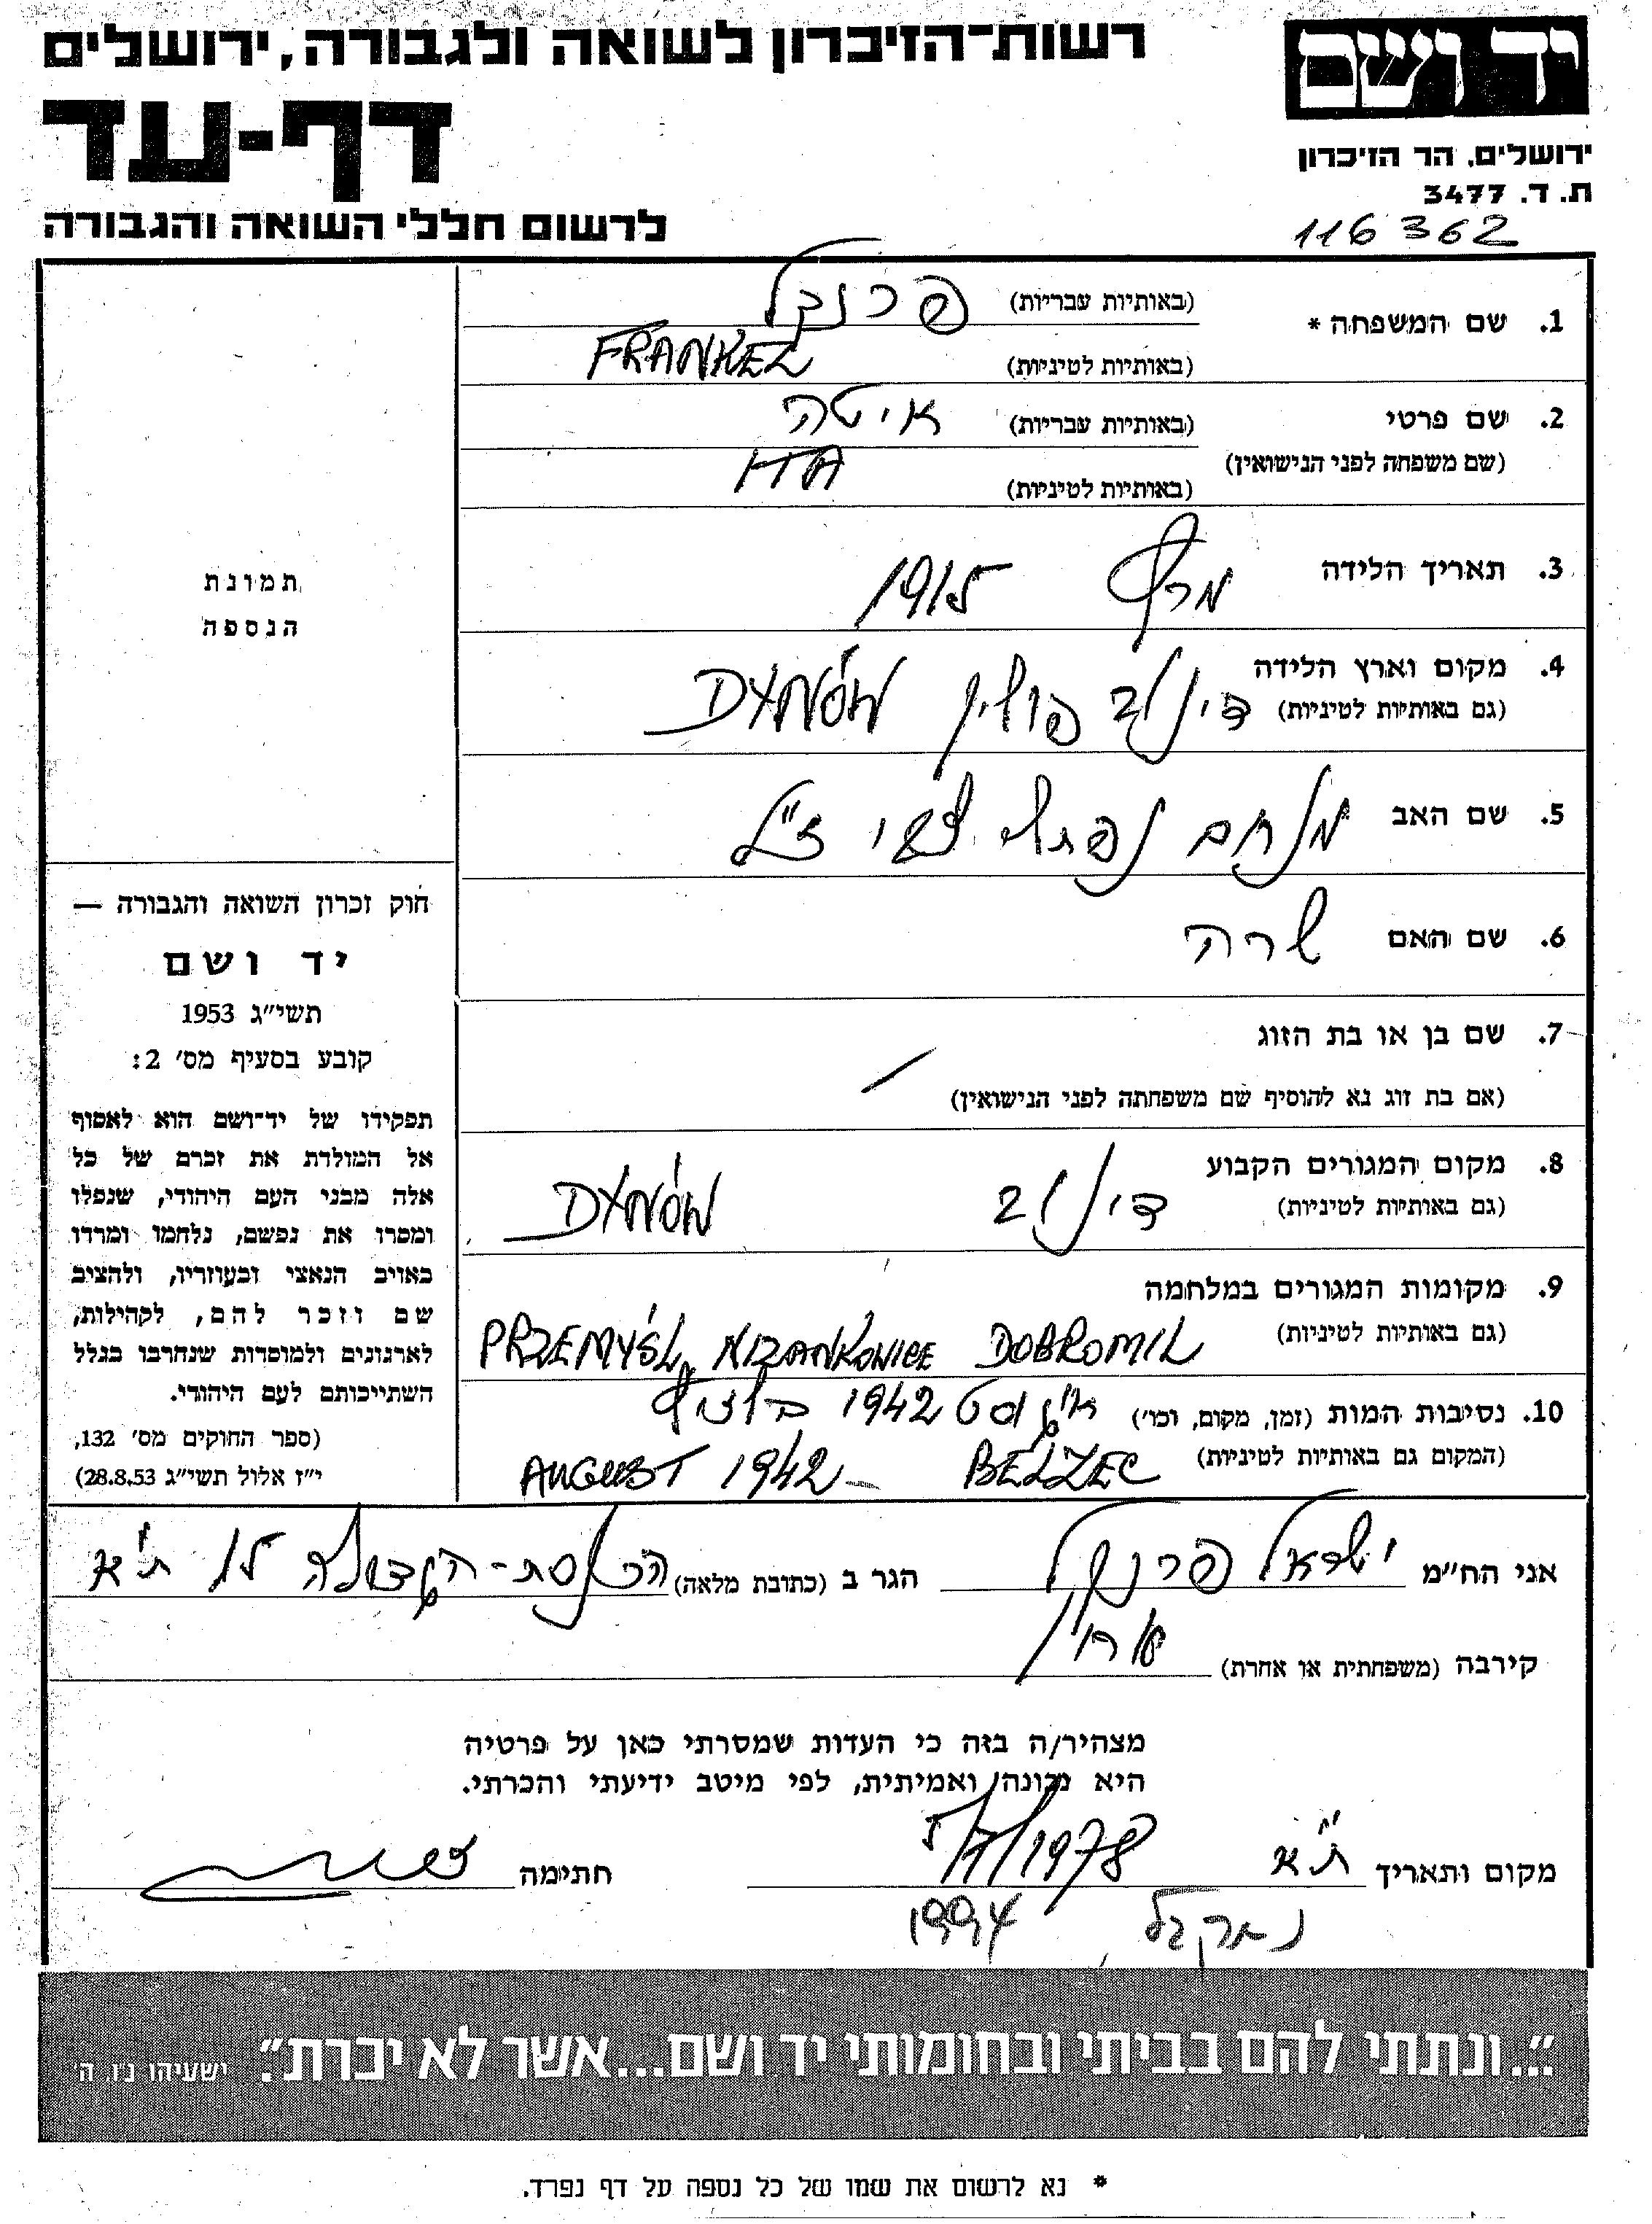 רשות-הזיכרון לשואה ולגבורה, ירושלים
יד ושם
דף-עד
ירושלים, הר הזיכרון
ת. ד. 3477
לרשום חללי השואה והגבורה
116362
1. שם המשפחה * (באותיות עבריות) פרנקל
(באותיות לטיניות) FRANKEL
2. שם פרטי (באותיות עבריות) איטה
(שם משפחה לפני הנישואין)
(באותיות לטיניות) ITA
3. תאריך הלידה מרץ 1915
4. מקום וארץ הלידה
(גם באותיות לטיניות) דינוב פולין DYNÓW
5. שם האב מנחם נפתלי צבי ז"ל
6. שם האם שרה
7. שם בן או בת הזוג
(אם בת זוג נא להוסיף שם משפחתה לפני הנישואין)
8. מקום המגורים הקבוע
(גם באותיות לטיניות) דינוב DYNÓW
9. מקומות המגורים במלחמה
(גם באותיות לטיניות) PRZEMYŚL, NIZANKOWICE DOBROMIL
10. נסיבות המות (זמן, מקום, וכו') אוגוסט 1942 בלזץ
(המקום גם באותיות לטיניות) BEŁZEC AUGUST 1942 -
תמונת
הנספה
חוק זכרון השואה והגבורה —
יד ושם
תשי"ג 1953
קובע בסעיף מס' 2:
תפקידו של יד-ושם הוא לאסוף
אל המולדת את זכרם של כל
אלה מבני העם היהודי, שנפלו
ומסרו את נפשם, נלחמו ומרדו
באויב הנאצי ובעוזריו, ולהציב
שם וזכר להם, לקהילות,
לארגונים ולמוסדות שנחרבו בגלל
השתייכותם לעם היהודי.
(ספר החוקים מס' 132,
י"ז אלול תשי"ג 28.8.53)
אני הח"מ ישראל פרנקל הגר ב (כתובת מלאה) הכנסת-הגדולה ת"א
קירבה (משפחתית או אחרת) אחין
מצהיר/ה בזה כי העדות שמסרתי כאן על פרטיה
היא נכונה ואמיתית, לפי מיטב ידיעתי והכרתי.
מקום ותאריך ת"א 5/7/1978 חתימה
1994
"...ונתתי להם בביתי ובחומותי יד ושם...אשר לא יכרת". ישעיהו נ"ו, ה'
* נא לרשום את שמו של כל נספה על דף נפרד.